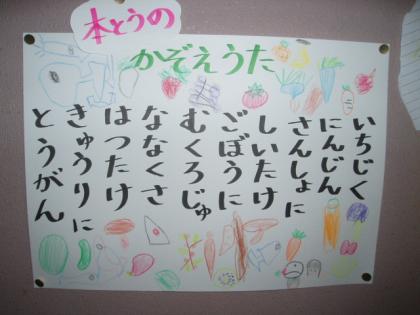 本とうの
かぞえうた
いちじく
にんじん
さんしょに
しいたけ
ごぼうに
むくろじゅ
ななくさ
はつたけ
きゅうりに
とうがん